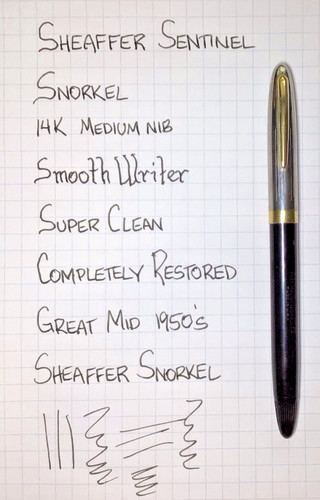 Sheaffer Sentinel
Snorkel
14K Medium Nib
Smooth Writer
Super Clean
Completely Restored
Great Mid 1950's
Sheaffer Snorkel